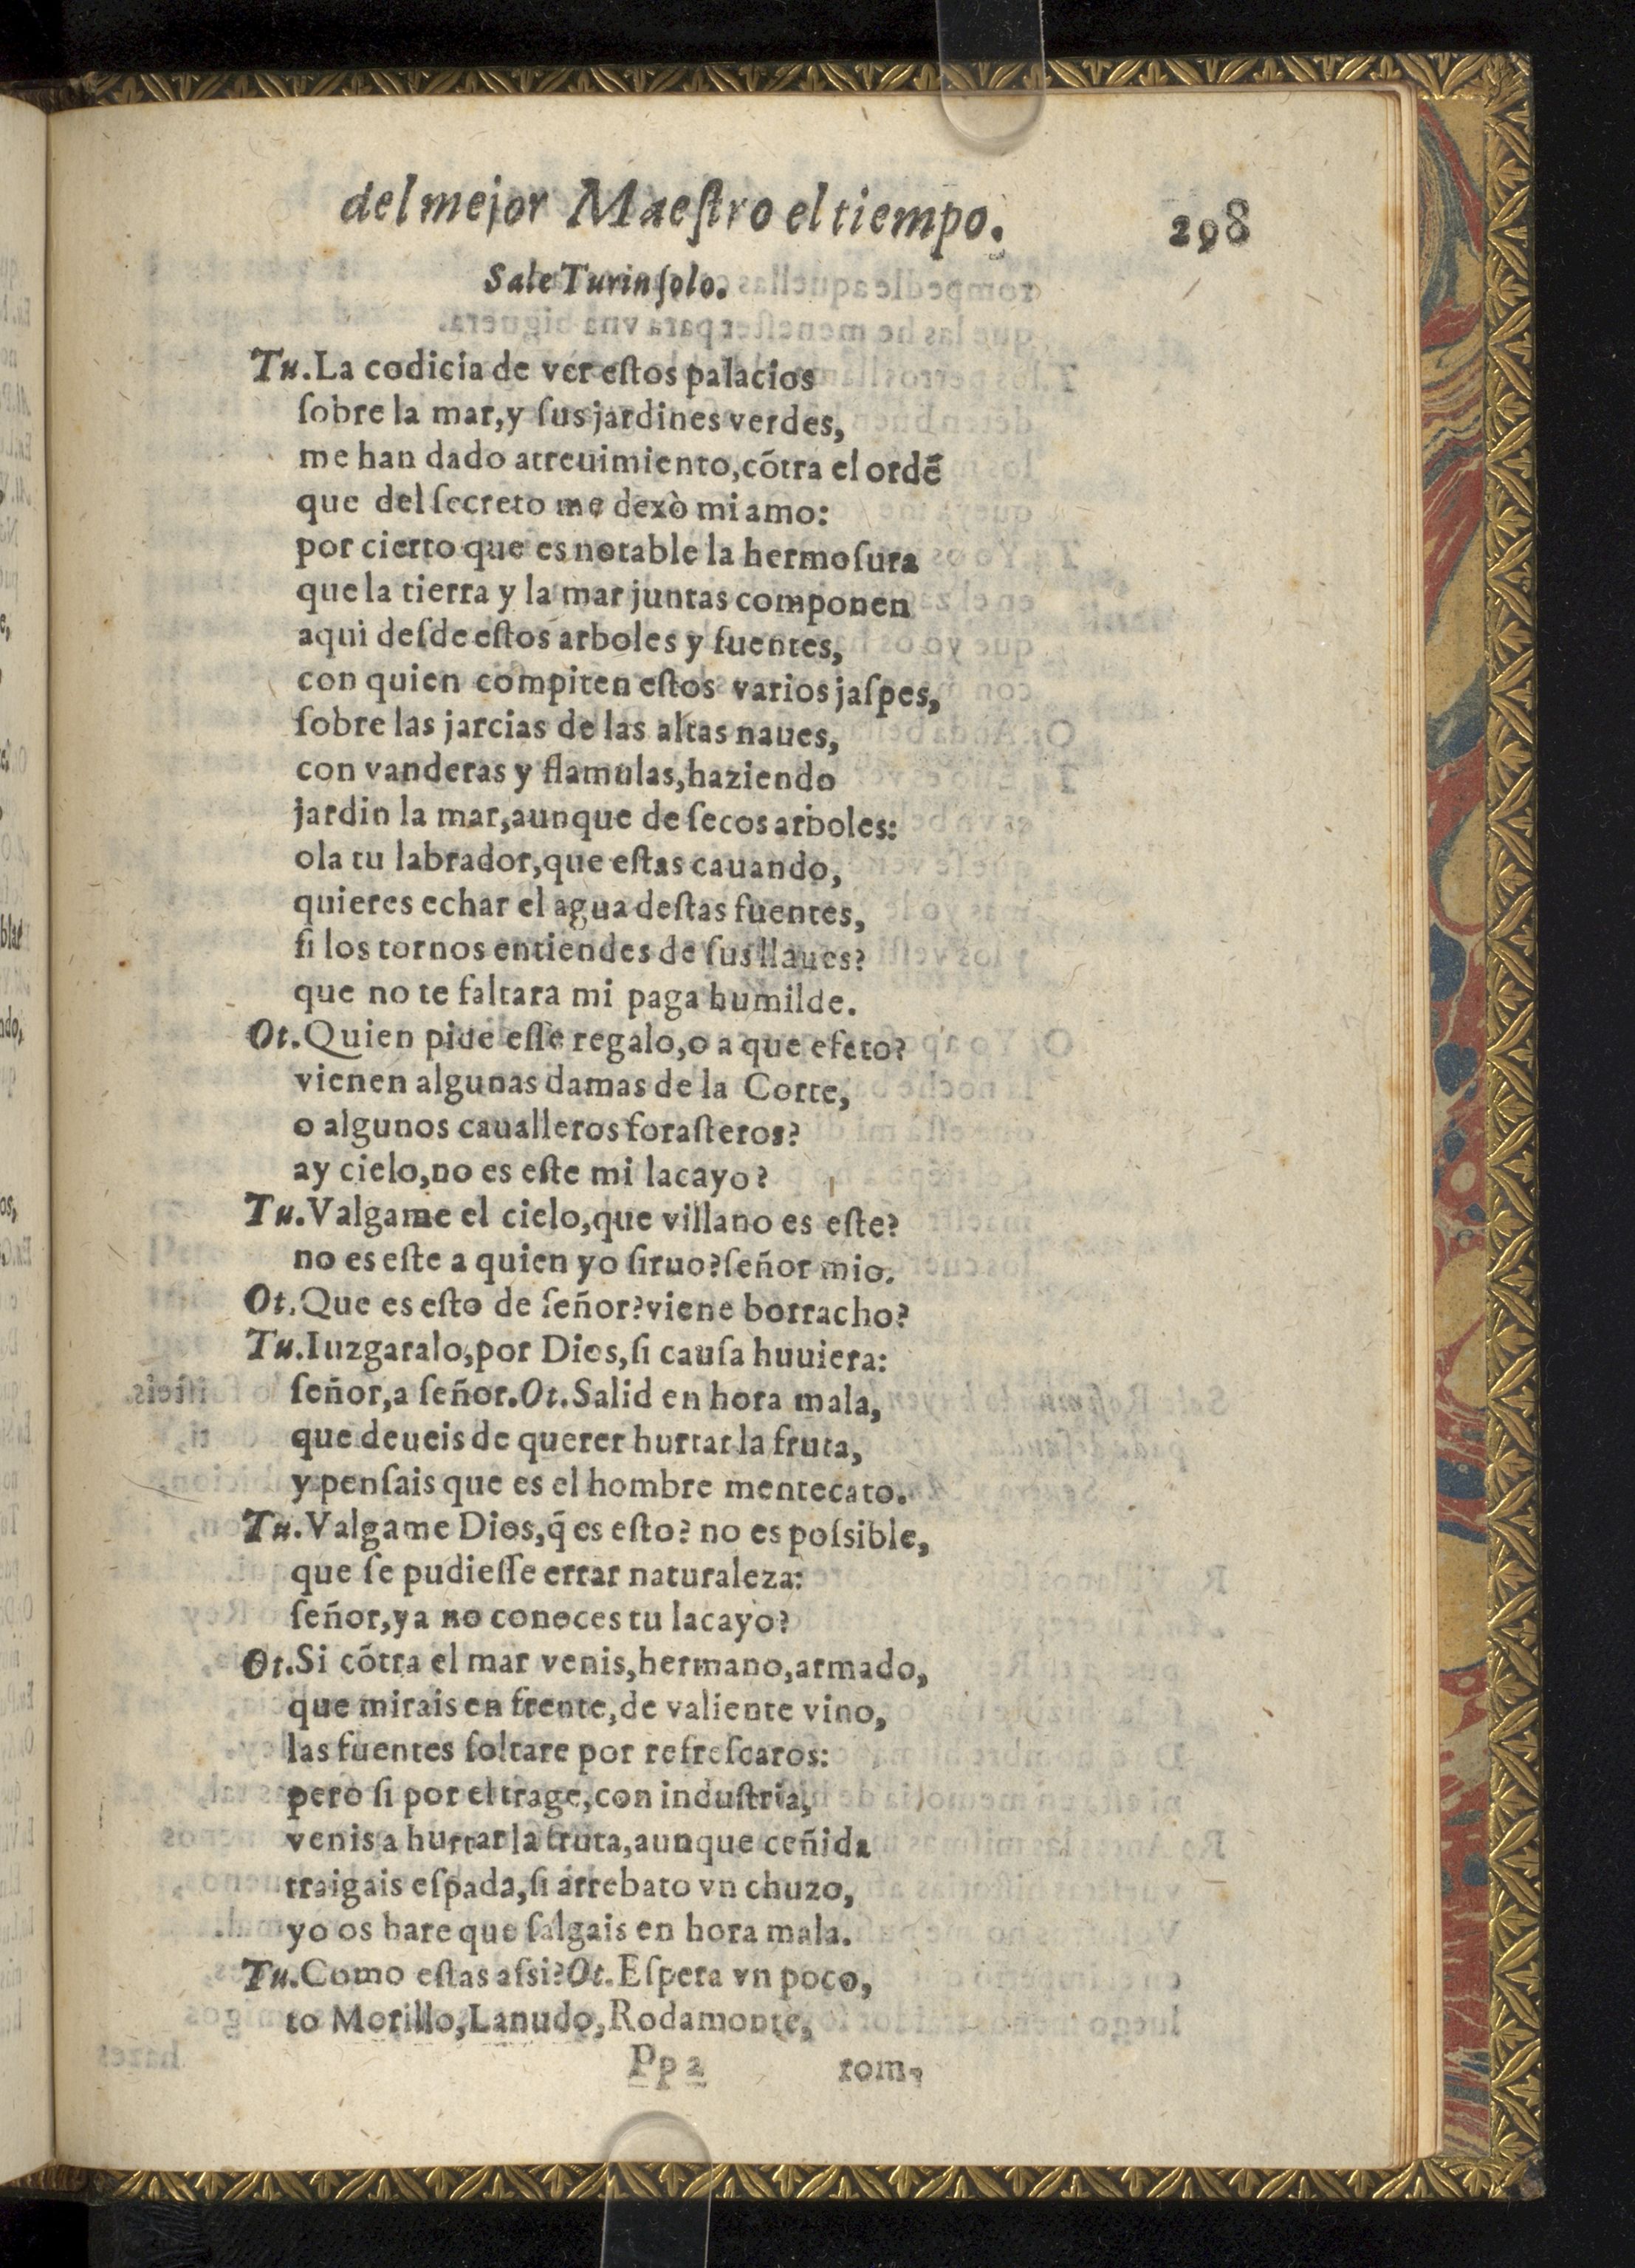 del mejor Maeſtro el tiempo. 298
Sale Turin ſolo.
Tu.La codicia de ver eſtos palacios
ſobre la mar,y ſus jardines verdes,
me han dado atreuimiento,cótra el ordẽ
que del ſecreto me dexò mi amo:
por cierto que es notable la hermoſura
que la tierra y la mar juntas componen
aqui deſde eſtos arboles y fuentes,
con quien compiten eſtos varios jaſpes,
ſobre las jarcias de las altas naues,
con vanderas y flamulas,haziendo
jardin la mar,aunque de ſecos arboles:
ola tu labrador,que eſtas cauando,
quieres echar el agua deſtas fuentes,
ſi los tornos entiendes de ſus llaues?
que no te faltara mi paga humilde.
Ot.Quien pide eſſe regalo,o a que efeto?
vienen algunas damas de la Corte,
o algunos caualleros foraſteros?
ay cielo,no es eſte mi lacayo?
Tu.Valgame el cielo,que villano es eſte?
no es eſte a quien yo ſiruo?ſeñor mio.
Ot.Que es eſto de ſeñor?viene borracho?
Tu.Iuzgaralo,por Dios,ſi cauſa huuiera:
ſeñor,a ſeñor.Ot.Salid en hora mala,
que deueis de querer hurtar la fruta,
y penſais que es el hombre mentecato.
Tu.Valgame Dios,q̃ es eſto? no es poſsible,
que ſe pudieſſe errar naturaleza:
ſeñor,ya no conoces tu lacayo?
Ot.Si cótra el mar venis,hermano,armado,
que mirais en frente,de valiente vino,
las fuentes ſoltare por refreſcaros:
pero ſi por el trage,con induſtria,
venis a hurtar la fruta,aunque ceñida
traigais eſpada,ſi arrebato vn chuzo,
yo os hare que ſalgais en hora mala.
Tu.Como eſtas aſsi?Ot.Eſpera vn poco,
to Morillo,Lanudo,Rodamonte,
Pp 2 rom-